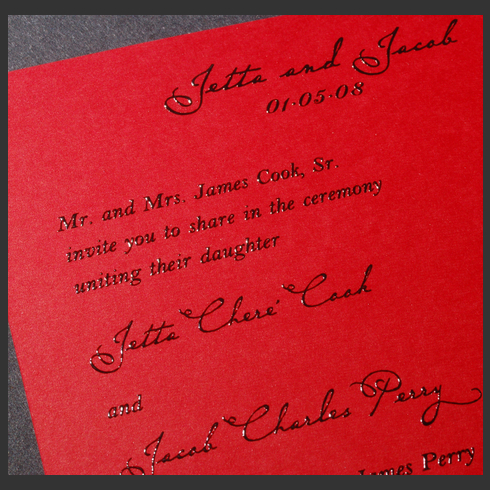 Jetta and Jacob
01·05·08
Mr. and Mrs. James Cook, Sr.
invite you to share in the ceremony
uniting their daughter
Jetta Cheré Cook
and
Jacob Charles Perry
James Perry